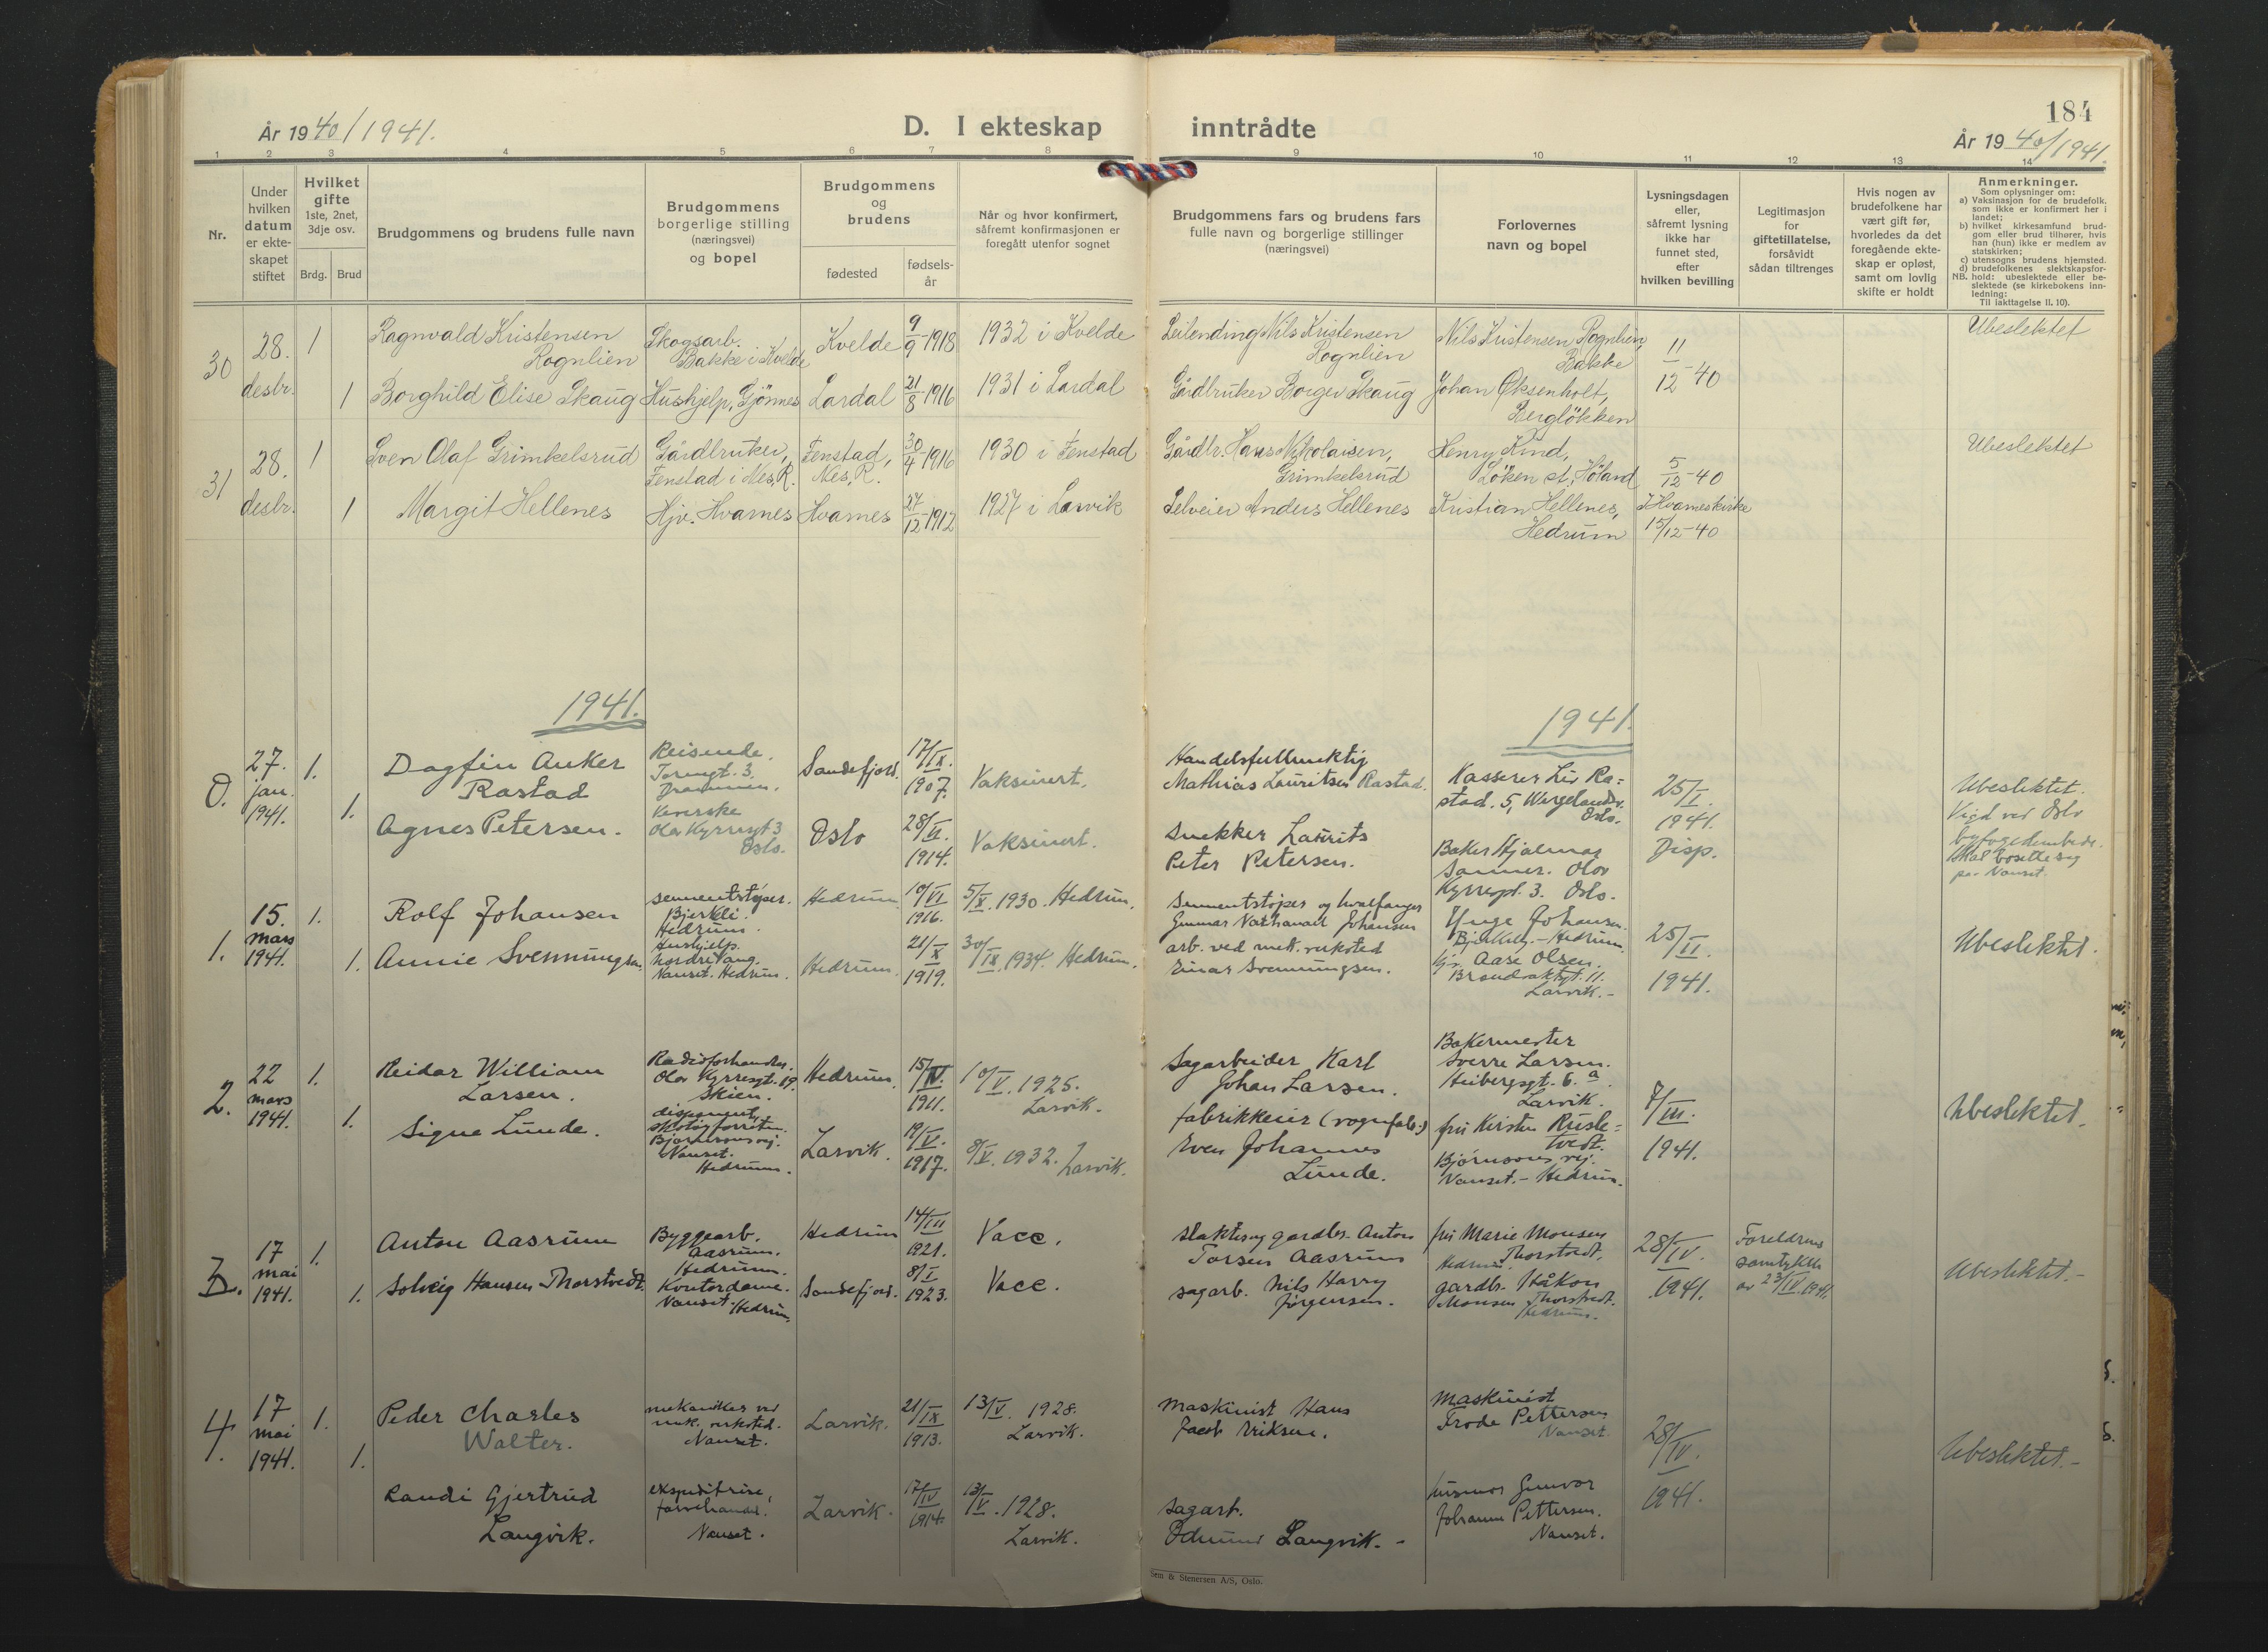 184
År 1940/1941.
D. I ekteskap inntrådte
År 1940/1941.
1 2 3 4 5 6 7 8 9 10 11 12 13 14
Nr.
Under
hvilken
datum
er ekte-
skapet
stiftet
Hvilket
gifte
1ste, 2net,
3dje osv.
Brdg. Brud
Brudgommens og brudens fulle navn
Brudgommens
borgerlige stilling
(næringsvei)
og bopel
Brudgommens
og
brudens
fødested
fødsels-
år
Når og hvor konfirmert,
såfremt konfirmasjonen er
foregått utenfor sognet
Brudgommens fars og brudens fars
fulle navn og borgerlige stillinger
(næringsvei)
Forlovernes
navn og bopel
Lysningsdagen
eller,
såfremt lysning
ikke har
funnet sted,
efter
hvilken bevilling
Legitimasjon
for
giftetillatelse,
forsåvidt
sådan tiltrenges
Hvis nogen av
brudefolkene har
vært gift før,
hvorledes da det
foregående ekte-
skap er opløst,
samt om lovlig
skifte er holdt
Anmerkninger.
Som oplysninger om:
a) Vaksinasjon for de brudefolk.
som ikke er konfirmert her i
landet;
b) hvilket kirkesamfund brud-
gom eller brud tilhører, hvis
han (hun) ikke er medlem av
statskirken;
c) utensogns brudens hjemsted.
d) brudefolkenes slektskapsfor-
NB. hold: ubeslektede eller be-
slektede (se kirkebokens inn-
ledning:
Til iakttagelse II. 10).
30
28.
desbr.
1
Ragnvald Kristensen
Rognlien
Skogsarb.
Bakke i Kvelde
Kvelde
9/9-1918
1932 i Kvelde
Leilending Nils Kristensen
Rognlien
Nils Kristensen Rognlien,
Bakke
11/12-40
Ubeslektet
1
Borghild Elise Skaug
Hushjelp, Gjönnes
Lardal
21/8-1916
1931 i Lardal
Gårdbruker Borger Skaug
Johan Øksenholt,
Berglökken
31
28.
desbr.
1
Sven Olaf Grimkelsrud
Gårdbruker,
Fenstad i Nes, R.
Fenstad,
Nes, R.
30/4-1916
1930 i Fenstad
Gårdbr. Hans Nikolaisen,
Grimkelsrud
Henry Kind,
Löken st, Höland
5/12-40
Ubeslektet
1
Margit Hellenes
Hjv. Hvarnes
Hvarnes
27/12-1912
1927 i Larvik
Selveier Anders Hellenes
Kristian Hellenes,
Hedrum
I Hvarneskirke
15/12-40
1941.
1941.
0.
27.
jan.
1941.
1.
Dagfin Anker
Rastad
Reisende.
Torvgt. 3.
Drammen.
Sandefjord.
17/IX.
1907.
Vaksinert.
Handelsfullmektig
Mathias Lauritsen Rastad.
Kasserer Liv Ra=
stad. 5, Wergelandsv.
Oslo.
25/I.
1941.
Disp.
Ubeslektet.
Vigd ved Oslo
byfogedembede.
Skal bosette seg
på Nanset.
1.
Agnes Petersen.
Olav Kyrresgt 3
Oslo.
Oslo
28/VI.
1914.
Vaksinert.
Snekker Laurits
Peter Petersen.
Baker Hjalmar
Sanner. Olav
Kyrresgt. 3. Oslo.
1.
15.
mars
1941.
1.
Rolf Johansen
sementstøper.
Bjerkeli.
Hedrum.
Hedrum.
10/VI
1916.
5/X. 1930. Hedrum.
Sementstøper og hvalfanger
Gunnar Nathanael Johansen
Yngve Johansen.
Bjerkeli. - Hedrum.
25/II.
1941.
Ubeslektet.
1.
Annie Svenningsen.
Hushjelp.
Nordre Vang.
Nanset. Hedrum.
Hedrum.
21/X
1919.
30/IX. 1934. Hedrum.
arb. ved mek. verksted
Einar Svenningsen.
Aase Olsen.
Brandvaktgt. 11.
Larvik. -
2.
22
mars
1941.
1.
Reidar William
Larsen.
Radioforhandler.
Olav Kyrresgt. 19.
Skien.
Hedrum.
15/IV.
1911.
10/V. 1925.
Larvik.
Sagarbeider Karl
Johan Larsen.
Bakermester
Sverre Larsen.
Heibergsgt. 6. a
Larvik.
7/III.
1941.
Ubeslektet.
1.
Signe Lunde.
disponent,
skotøyforretn.
Bjørnsonsvej.
Nanset.
Hedrum.
Larvik.
19/V.
1917.
8/V. 1932. Larvik.
fabrikkeier (vognfab.)
Even Johannes
Lunde.
fru Kirsten Rusle=
tvedt.
Bjørnsons vej.
Nanset. - Hedrum.
3.
17
mai
1941.
1.
Anton Aasrum
Byggearb.
Aasrum.
Hedrum.
Hedrum
14/III
1921.
Vacc.
Slakter og gardbr. Anton
Torsen Aasrum
fru Marie Monsen
Thorstvedt.
Hedrum.
28/IV.
1941.
Foreldrenes
samtykke
av 23/IV. 1941.
Ubeslektet. -
1.
Solveig Hansen Thorstvedt.
Kontordame.
Nanset. Hedrum.
Sandefjord.
8/I
1923.
Vacc.
sagarb. Nils Harry
Jørgensen.
gardbr. Håkon
Monsen Thorstvedt.
Hedrum.
4.
17
mai
1941.
1.
Peder Charles
Walter.
mekaniker ved
mek. verksted.
Nanset.
Larvik.
21/IX
1913.
13/V. 1928.
Larvik.
Maskinist Hans
Jacob Eriksen.
Maskinist
Frode Pettersen
Nanset.
28/IV.
1941.
Ubeslektet. -
1.
Randi Gjertrud
Langvik.
ekspeditrise,
farvehandel.
Nanset.
Larvik.
17/IV
1914.
13/V. 1928.
Larvik.
sagarb.
Edmund Langvik. -
husmor Gunvor
Johanne Pettersen.
Nanset.
Sem & Stenersen A/S, Oslo.